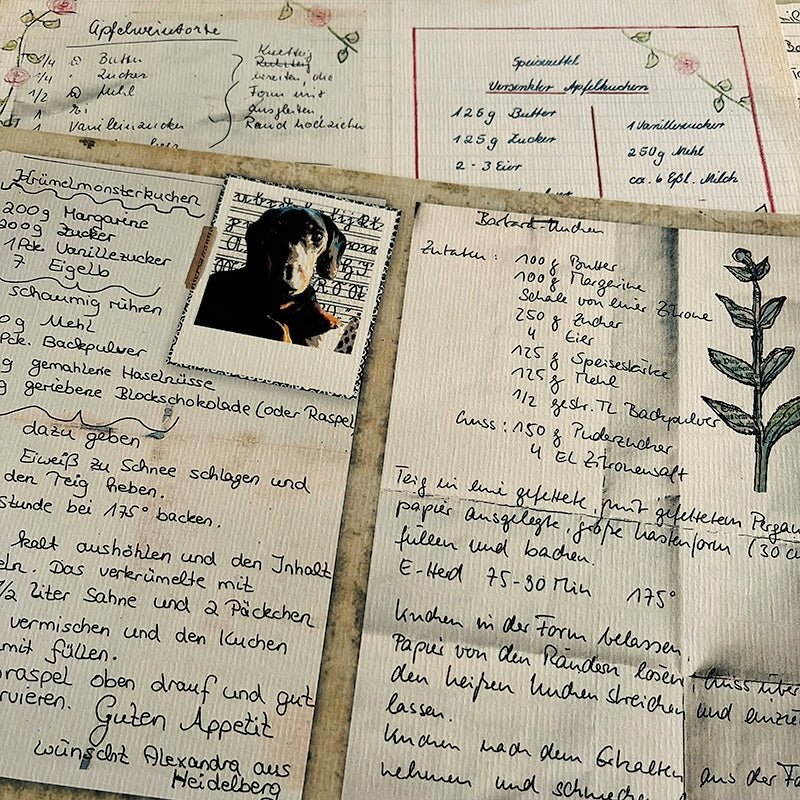 Apfelweintorte
1/4 Butter
1/4 Zucker
1/2 Mehl
1 Ei
1 Vanilleinzucker
Knetteig
bereiten, die
Form mit
ausgleiten
Rand hochziehen
Speisezettel
Versenkter Apfelkuchen
125g Butter
125g Zucker
2-3 Eier
1 Vanillezucker
250g Mehl
ca. 6 Eßl. Milch
Krümelmonsterkuchen
200g Margarine
200g Zucker
1 Pck. Vanillezucker
7 Eigelb
schaumig rühren
0g Mehl
Pck. Backpulver
g gemahlene Haselnüsse
g geriebene Blockschokolade (oder Raspel
dazu geben
Eiweiß zu Schnee schlagen und
den Teig heben.
Stunde bei 175° backen.
kalt aushöhlen und den Inhalt
eln. Das verkrümelte mit
1/2 liter Sahne und 2 Päckchen
vermischen und den Kuchen
mit füllen.
raspel oben drauf und gut
rvieren.
Guten Appetit
wünscht Alexandra aus
Heidelberg
Barbara-Kuchen
Zutaten: 100 g Butter
100 g Margarine
Schale von einer Zitrone
250 g Zucker
4 Eier
125 g Speisestärke
125 g Mehl
1/2 gestr. TL Backpulver
Guss: 150 g Puderzucker
4 EL Zitronensaft
Teig in eine gefettete, mit gefettetem Pergam
papier ausgelegte, große Kastenform (30 c
füllen und backen.
E-Herd 75-90 Min 175°
Kuchen in der Form belassen.
Papier von den Rändern lösen, Guss über
den heißen Kuchen streichen und einzie
lassen.
Kuchen nach dem Erkalten aus der Fo
nehmen und